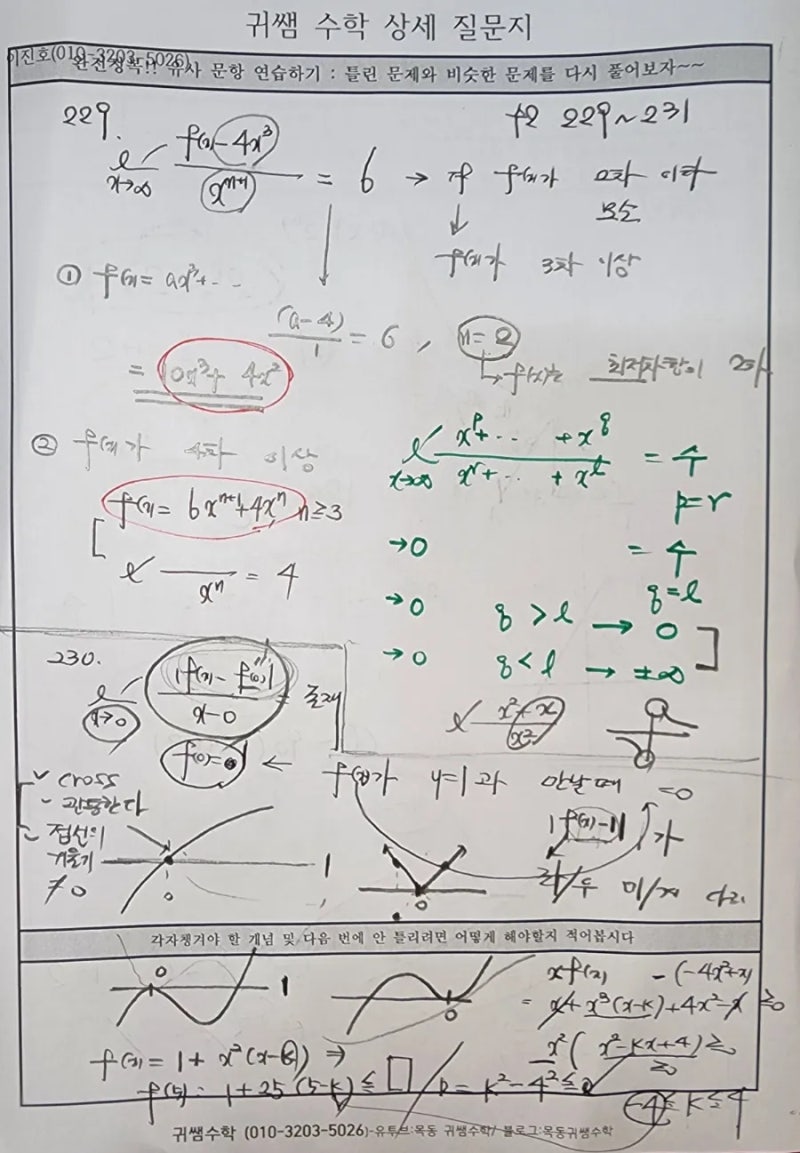 귀쌤 수학 상세 질문지
이진호(010-3203-5026)
완전정복!! 유사 문항 연습하기 : 틀린 문제와 비슷한 문제를 다시 풀어보자~~
229.
229~231
f(x)-4x³
x→∞
xⁿ⁺¹
= 6 → f(x)가 이하
모순
f(x)가 3차 이상
① f(x)= ax³+ ··
(a-4)
1
= 6 , n=2
= 10x³+ 4x²
f(x)는 최저차항이 2차
② f(x)가 4차 이상
f(x)= 6xⁿ⁺¹+4xⁿ n≥3
xⁿ = 4
xᵖ+ ·· +x^q
x→∞ xʳ+ ·· + x^l
p=r
→0 =
q=l
→0 q > l → 0
→0 q < l → ±∞
x²+x
x²
230.
|f(x)-f(0)|
x→0 x-0 = 존재
f(0)= ← f(x)가 y=1과 만날때 =0
cross
관통한다
접선의
기울기
≠0
|f(x)-1| 가
좌/우 미/계 다.
0
1
0
각자챙겨야 할 개념 및 다음 번에 안 틀리려면 어떻게 해야할지 적어봅시다
0
1
0
xf(x) -(-4x²+x)
= x+x³(x-k)+4x²-x ≥0
f(x)= 1+ x²(x-k) ⇒
x²(x²-kx+4)≥0
≥0
f(5)= 1+25(5-k)≤ □
D=k²-4²≤0
-4≤k≤4
귀쌤수학 (010-3203-5026)-유투브:목동 귀쌤수학/ 블로그:목동귀쌤수학